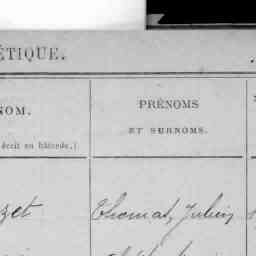 ÉTIQUE.
NOM.
PRÉNOMS
ET SURNOMS.
écrit en bâtarde.)
zet
Thomas, Julien